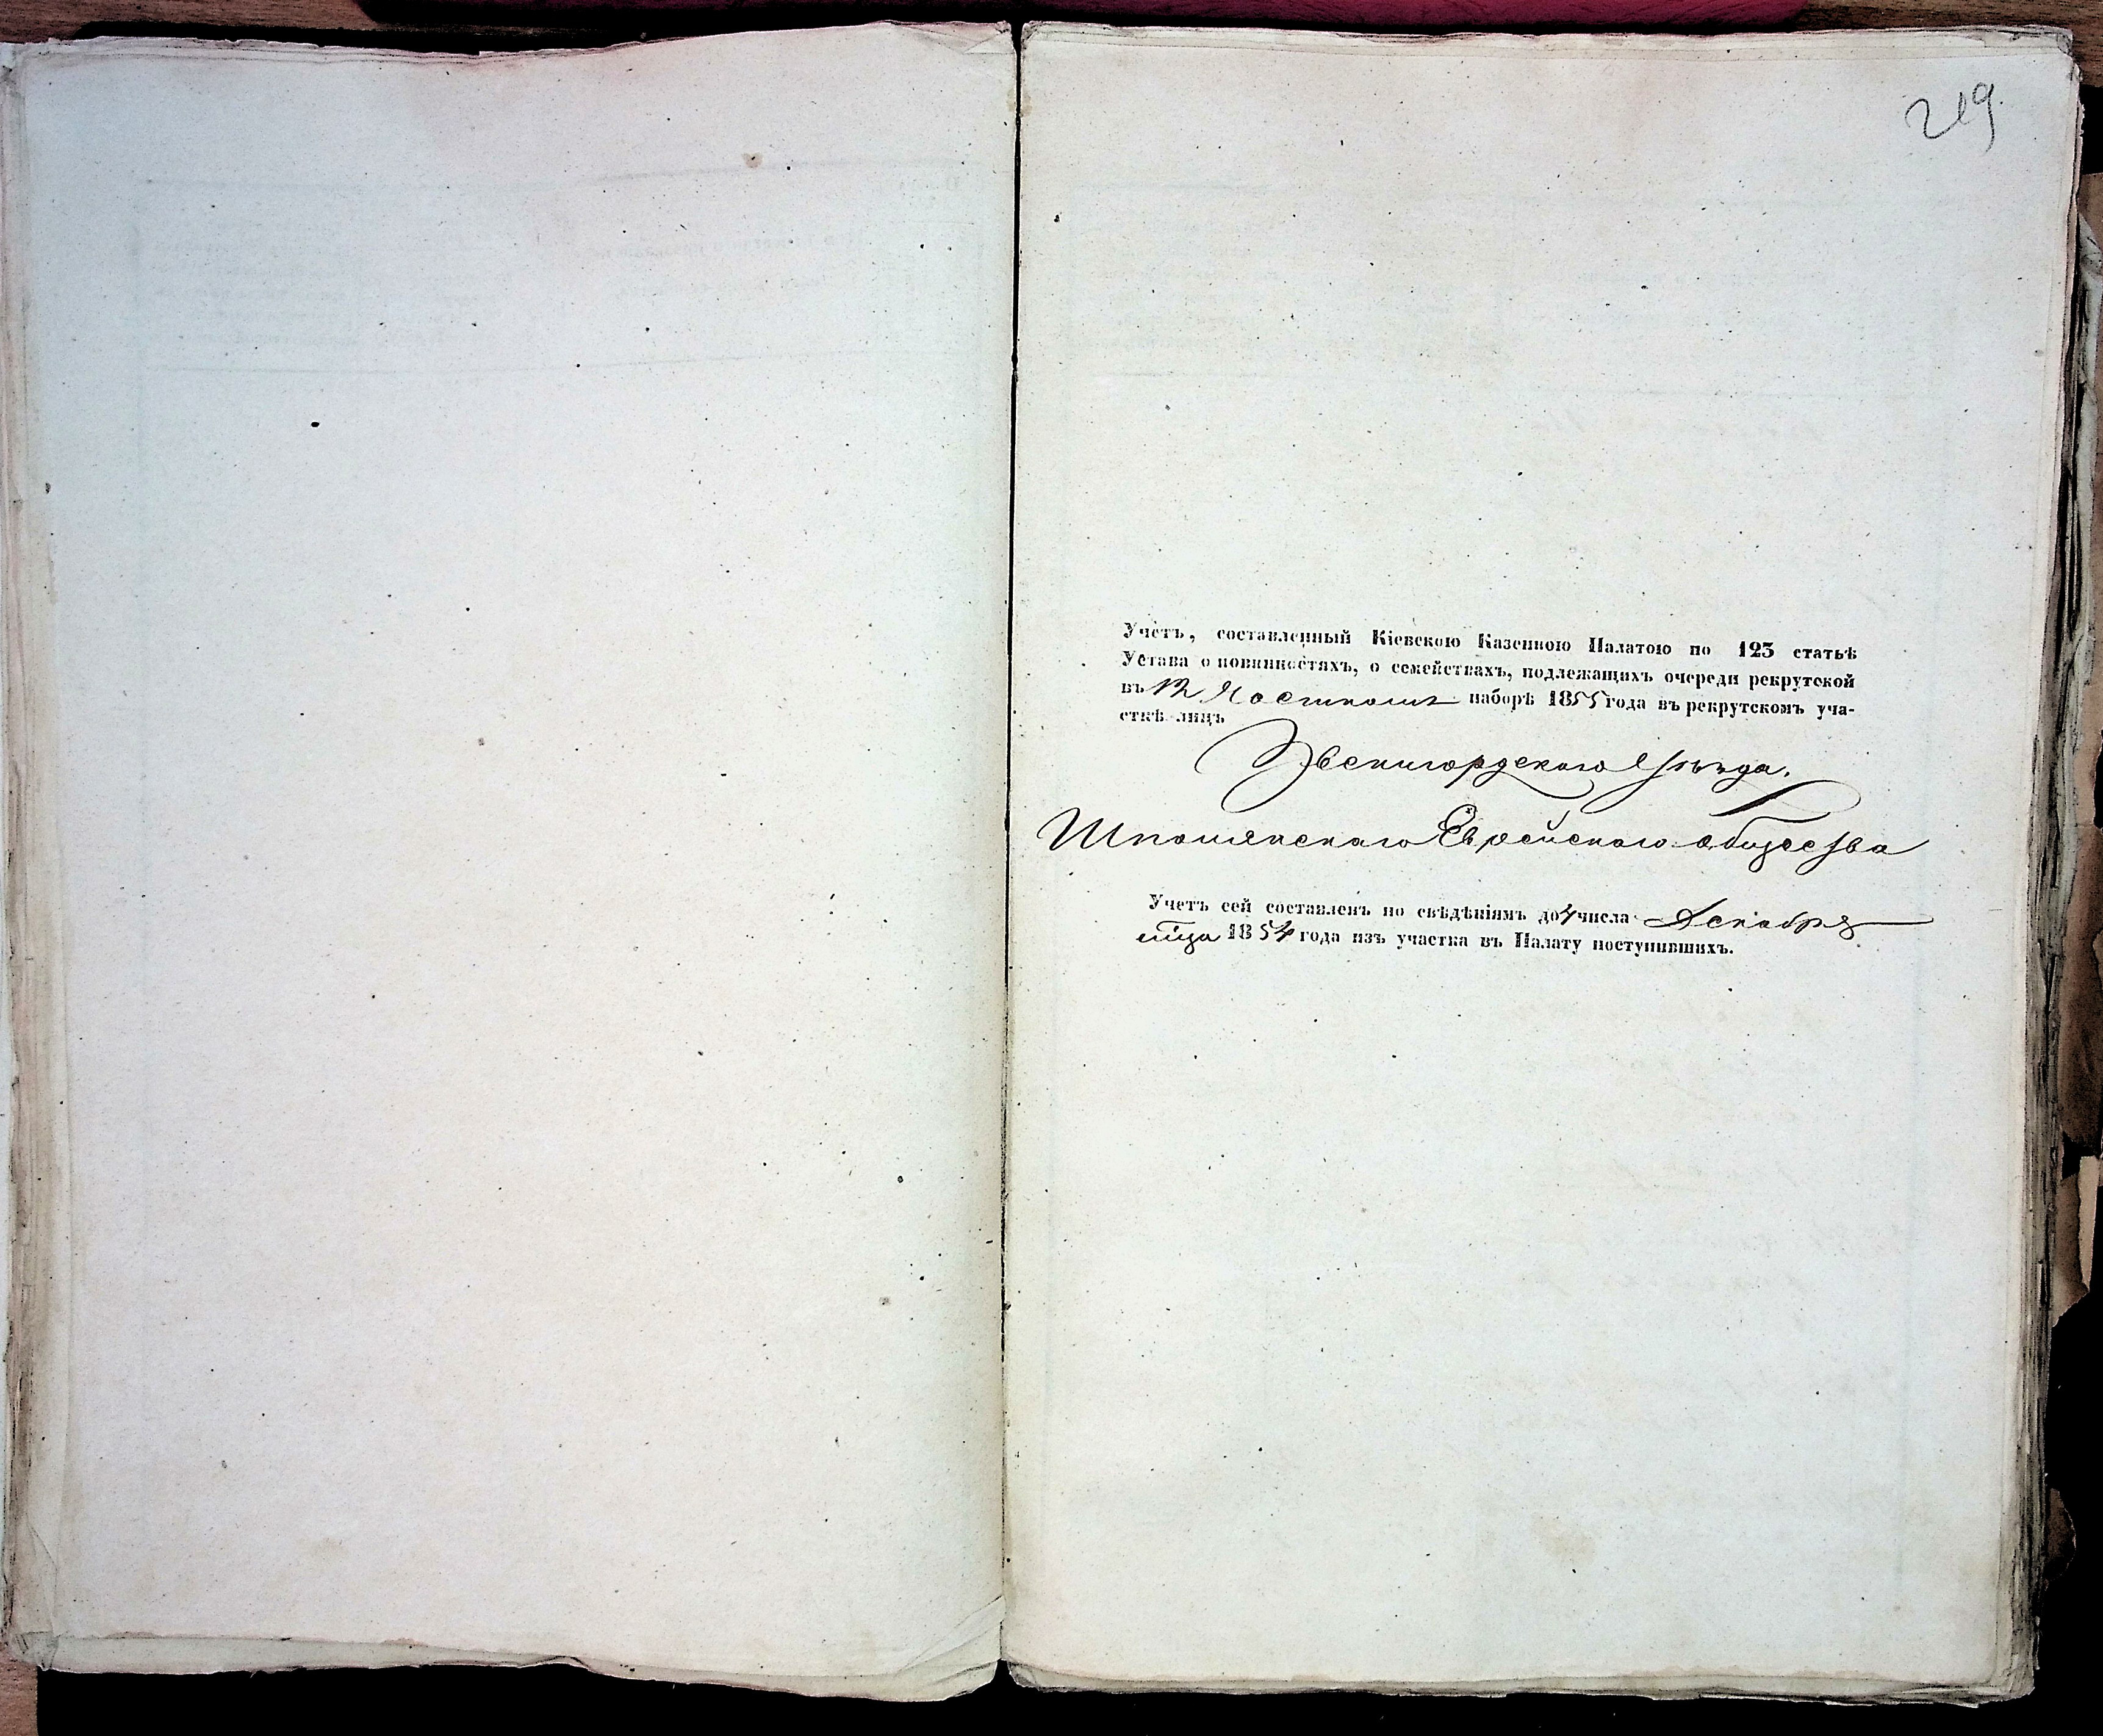 219
Учетъ, составленный Кіевскою Казенною Палатою по 123 статьѣ
Устава о повинностяхъ, о семействахъ, подлежащихъ очереди рекрутской
въ 12 Частномъ наборѣ 1855 года въ рекрутскомъ уча-
сткѣ лицъ
Звенигордскаго Уѣзда.
Шполянскаго Еврейскаго общества
Учетъ сей составленъ по свѣдѣніямъ до 4 числа Декабря
мѣца 1854 года изъ участка въ Палату поступившихъ.